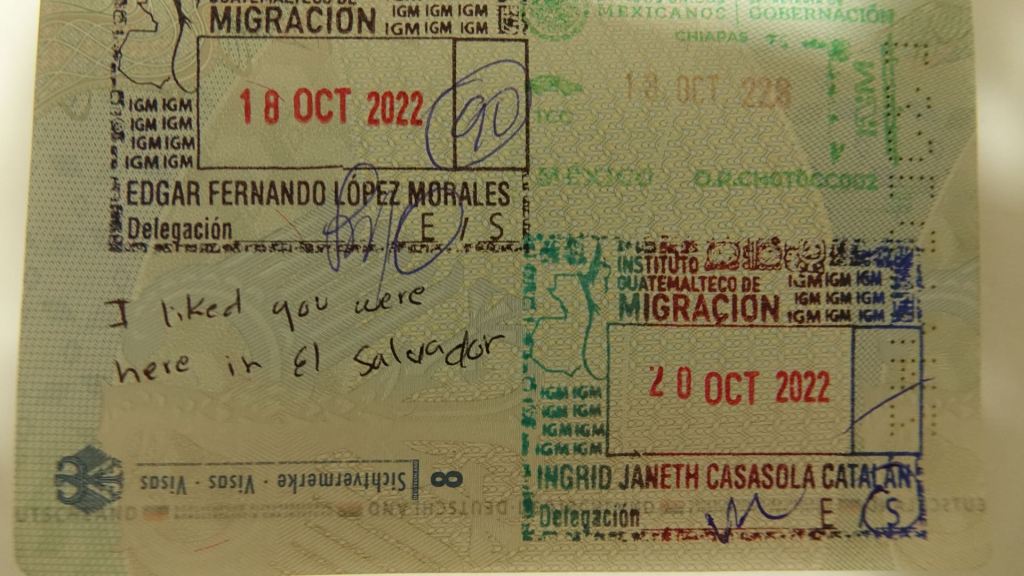 GUATEMALTECO DE
MIGRACIÓN
IGM IGM IGM
IGM IGM IGM
IGM IGM
IGM IGM
IGM IGM
IGM IGM
18 OCT 2022
90
EDGAR FERNANDO LÓPEZ MORALES
Delegación
E / S
MEXICANOS
GOBERNACIÓN
CHIAPAS
18 OCT. 228
MÉXICO
I liked you were
here in El Salvador
INSTITUTO
GUATEMALTECO DE
MIGRACIÓN
IGM IGM
IGM IGM IGM
IGM IGM IGM
IGM IGM
IGM IGM
IGM IGM
IGM IGM
20 OCT 2022
INGRID JANETH CASASOLA CATALÁN
Delegación
E / S
8
Sichtvermerke · Visas · Visas
DEUTSCHLAND